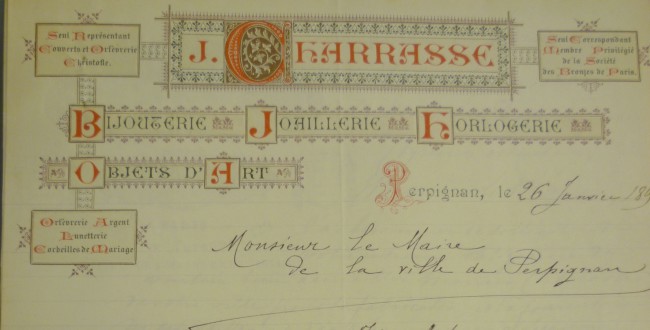 Seul Représentant
Couverts et Orfèvrerie
Christofle.
J. CHARRASSE
Seul Correspondant
Membre Privilégié
de la Société
des Bronzes de Paris.
BIJOUTERIE JOAILLERIE HORLOGERIE
OBJETS D'ART
Perpignan, le 26 Janvier
Orfèvrerie Argent
Lunetterie
Corbeilles de Mariage
Monsieur le Maire
de la ville de Perpignan